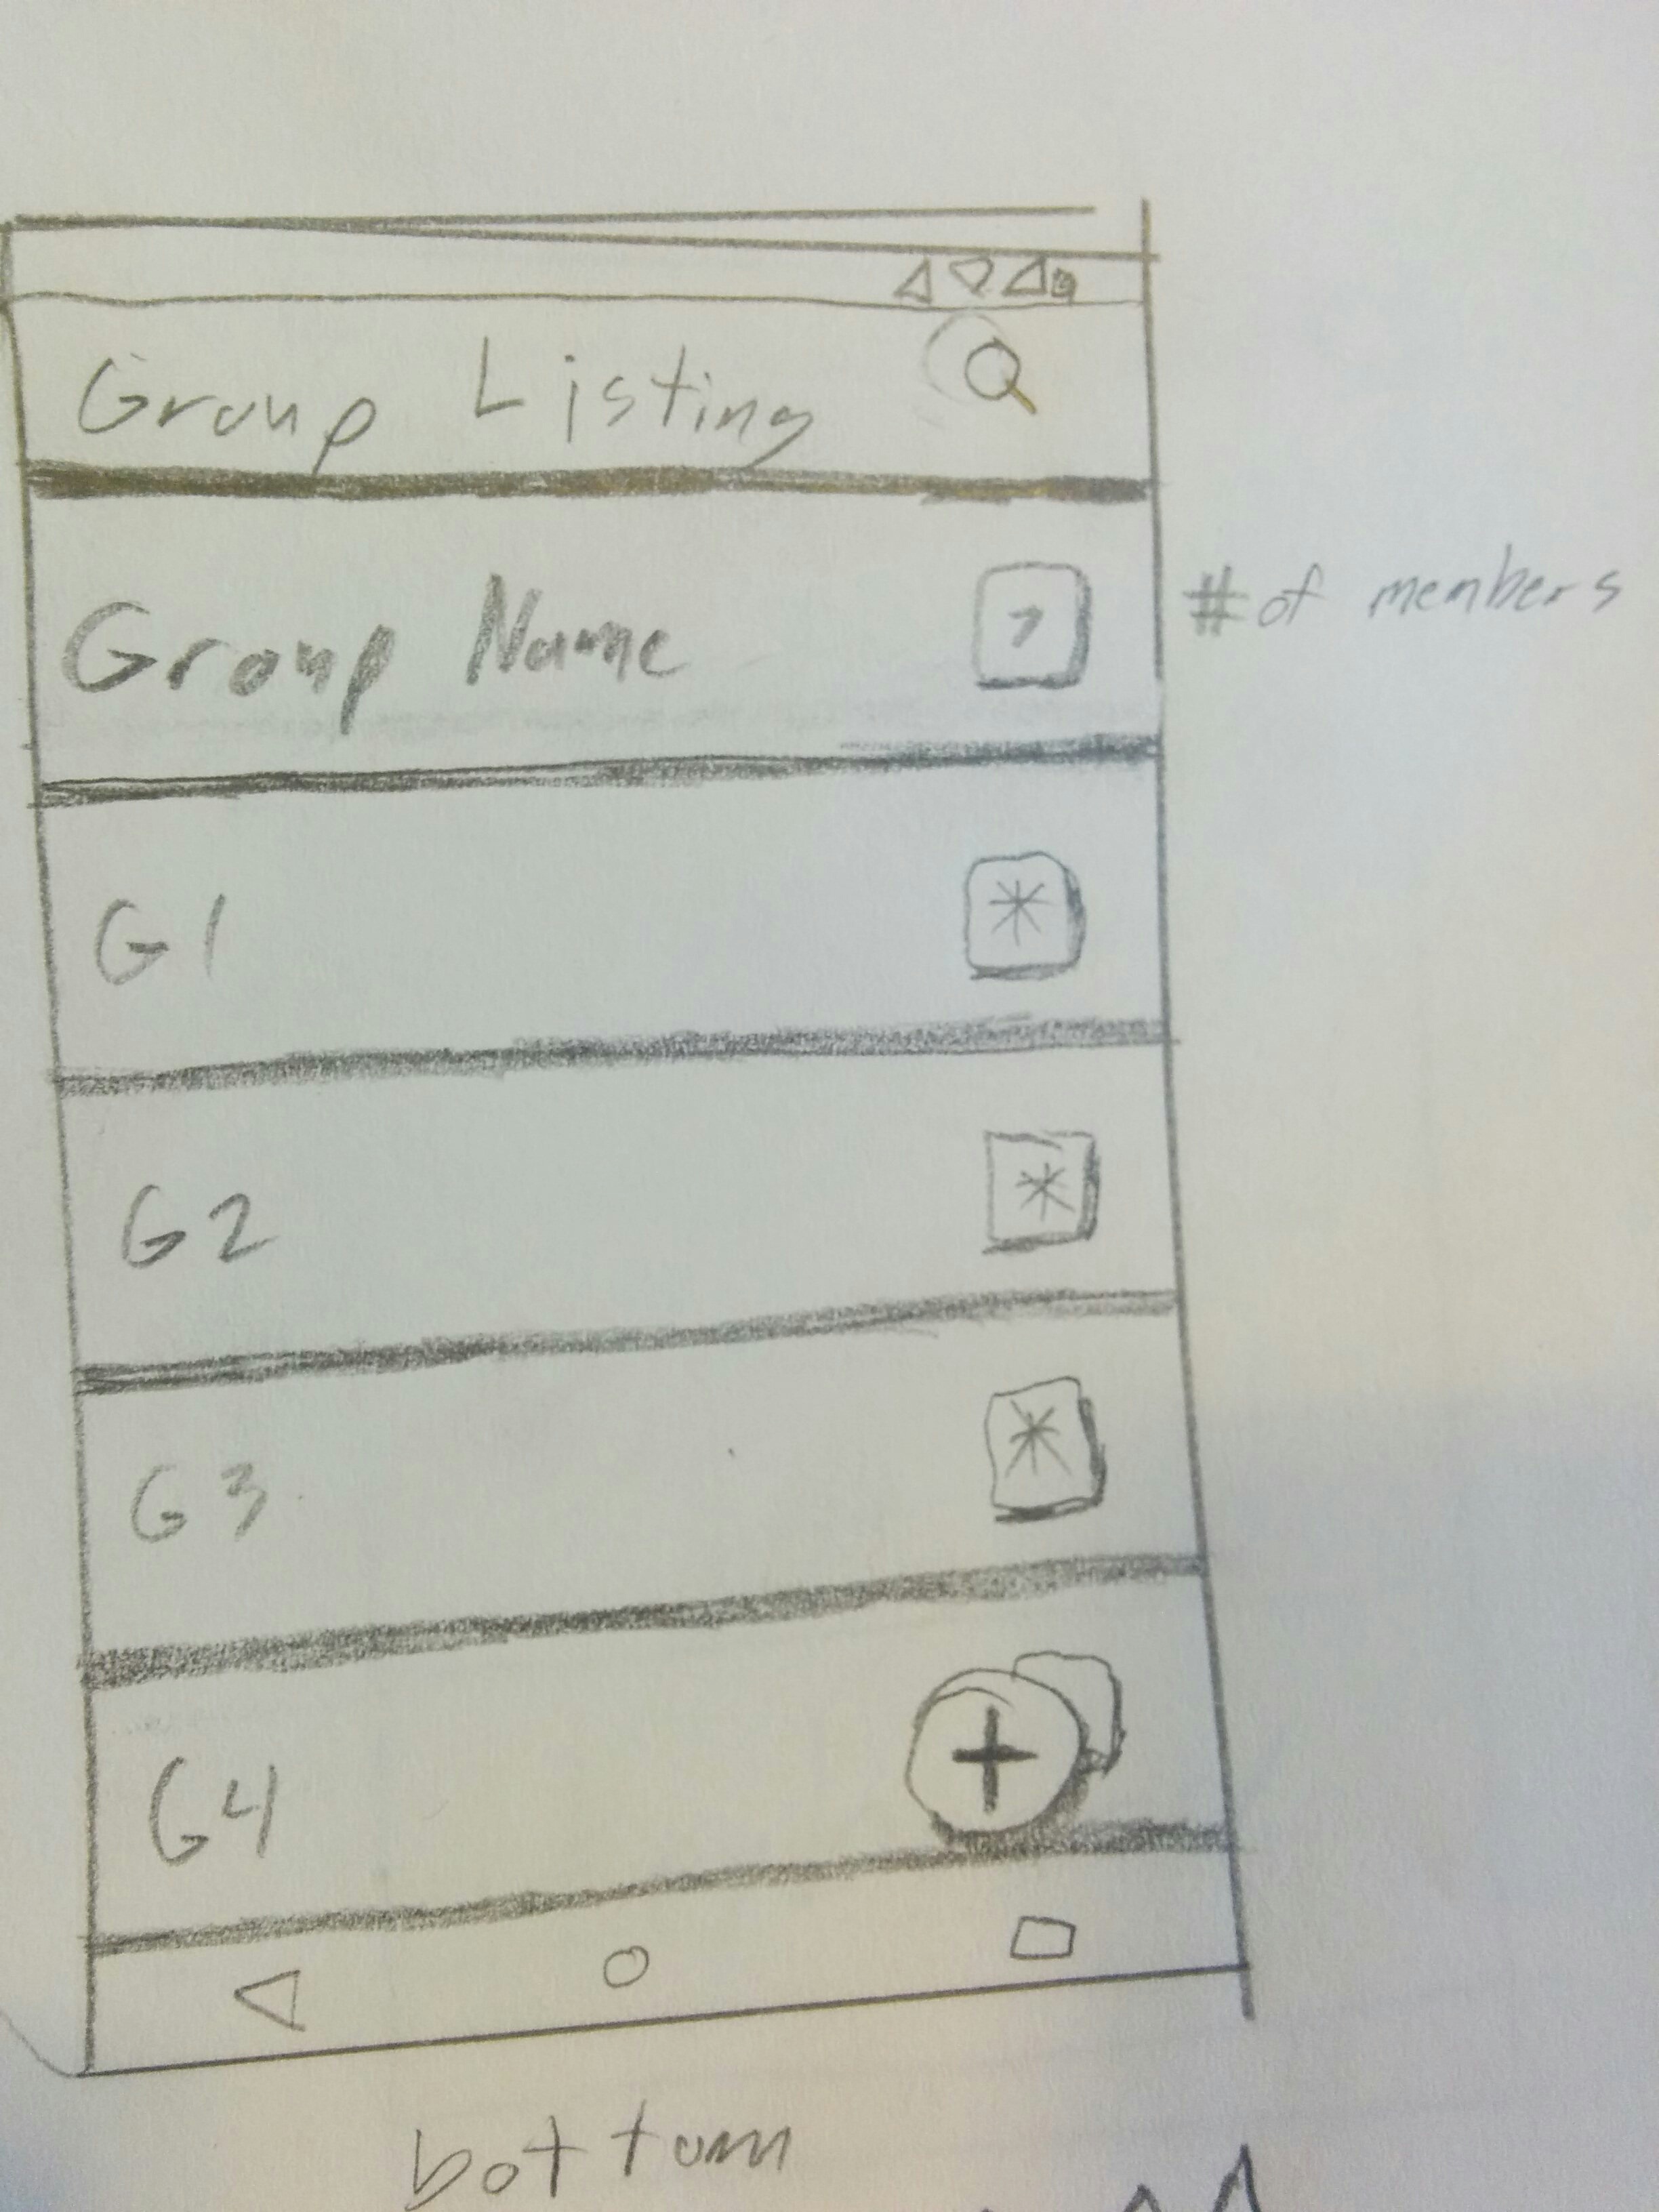 Group Listing
Group Name
# of members
G1 *
G2 *
G3 *
G4 +
bottom